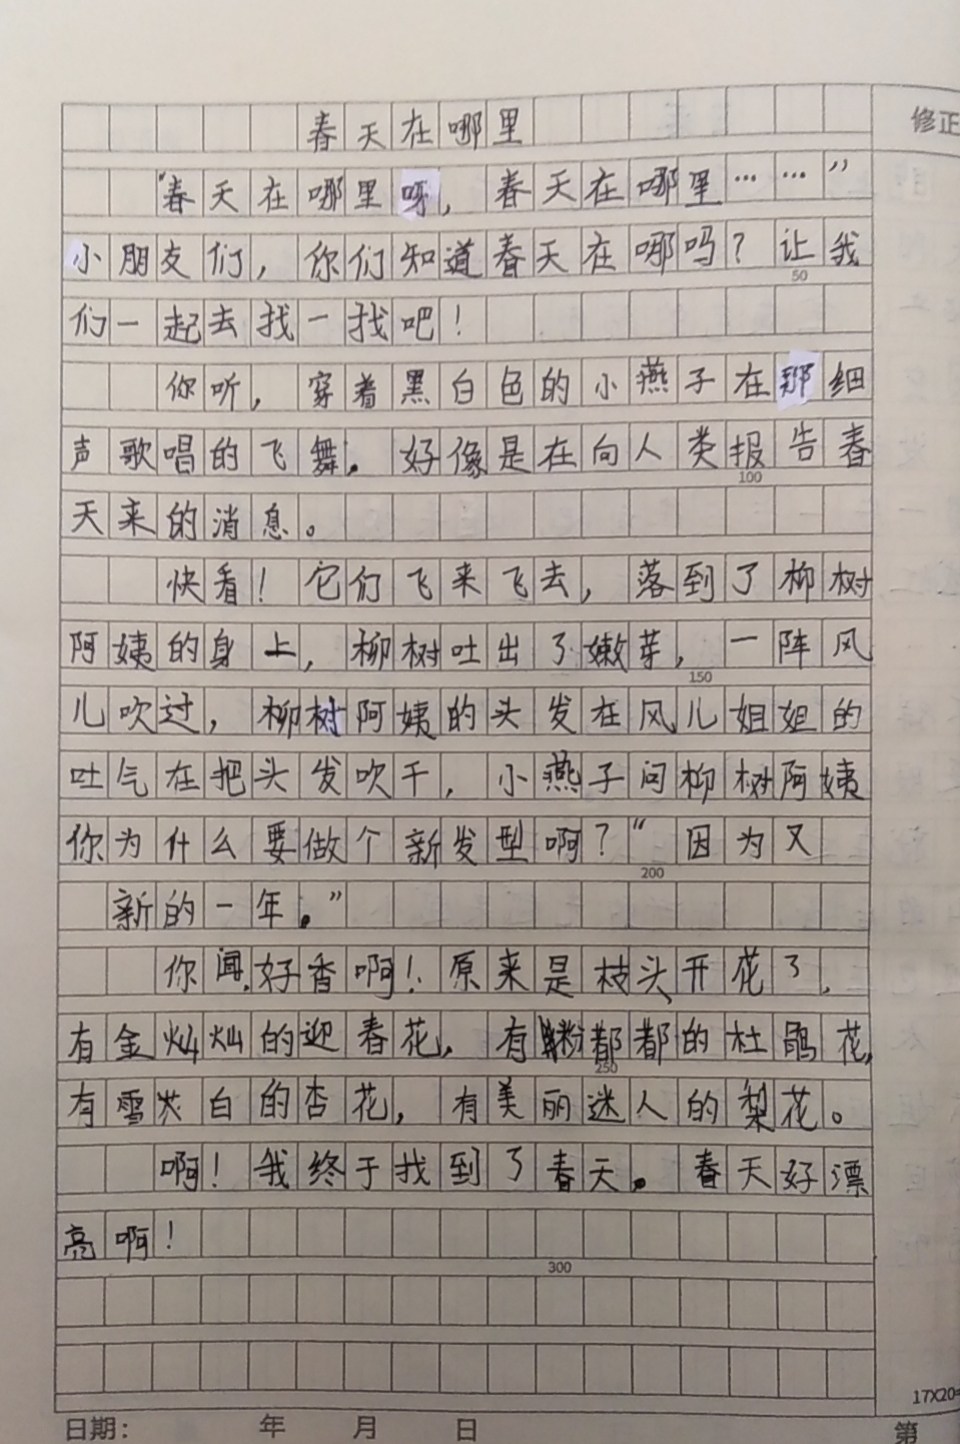 春天在哪里
修正
“春天在哪里呀，春天在哪里……”
小朋友们，你们知道春天在哪吗？让我
50
们一起去找一找吧！
你听，穿着黑白色的小燕子在那细
声歌唱的飞舞。好像是在向人类报告春
100
天来的消息。
快看！它们飞来飞去，落到了柳树
阿姨的身上，柳树吐出了嫩芽，一阵风
150
儿吹过，柳树阿姨的头发在风儿姐姐的
吐气在把头发吹干，小燕子问柳树阿姨
你为什么要做个新发型啊？“因为又
200
新的一年。”
你闻，好香啊！原来是枝头开花了，
有金灿灿的迎春花，有粉都都的杜鹃花，
250
有雪茫白的杏花，有美丽迷人的梨花。
啊！我终于找到了春天。春天好漂
亮啊！
300
17X20=
日期： 年 月 日 第